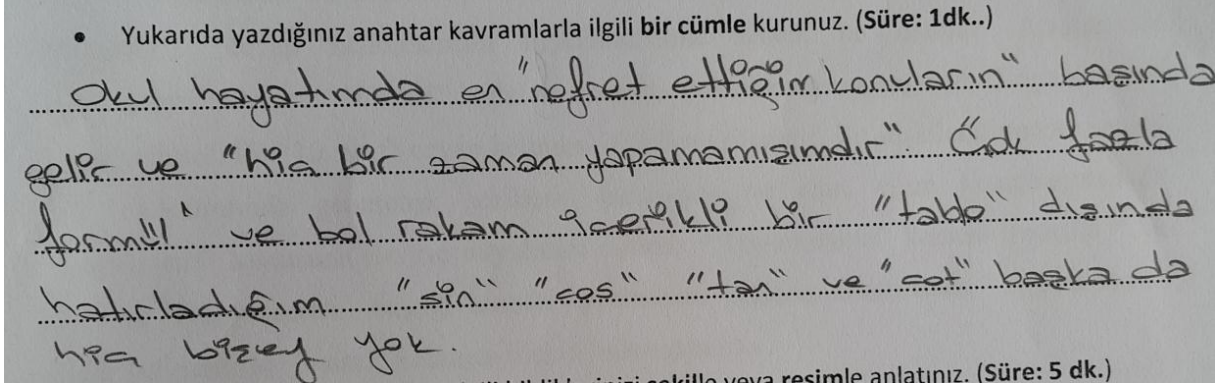 • Yukarıda yazdığınız anahtar kavramlarla ilgili bir cümle kurunuz. (Süre: 1dk..)
Okul hayatımda en "nefret ettiğim konuların" başında
gelir ve "hiç bir zaman yapamamışımdır". Çok fazla
formül" ve bol rakam içerikli bir "tablo" dışında
hatırladığım "sin" "cos" "tan" ve "cot" başka da
hiç bişey yok.
şekille veya resimle anlatınız. (Süre: 5 dk.)